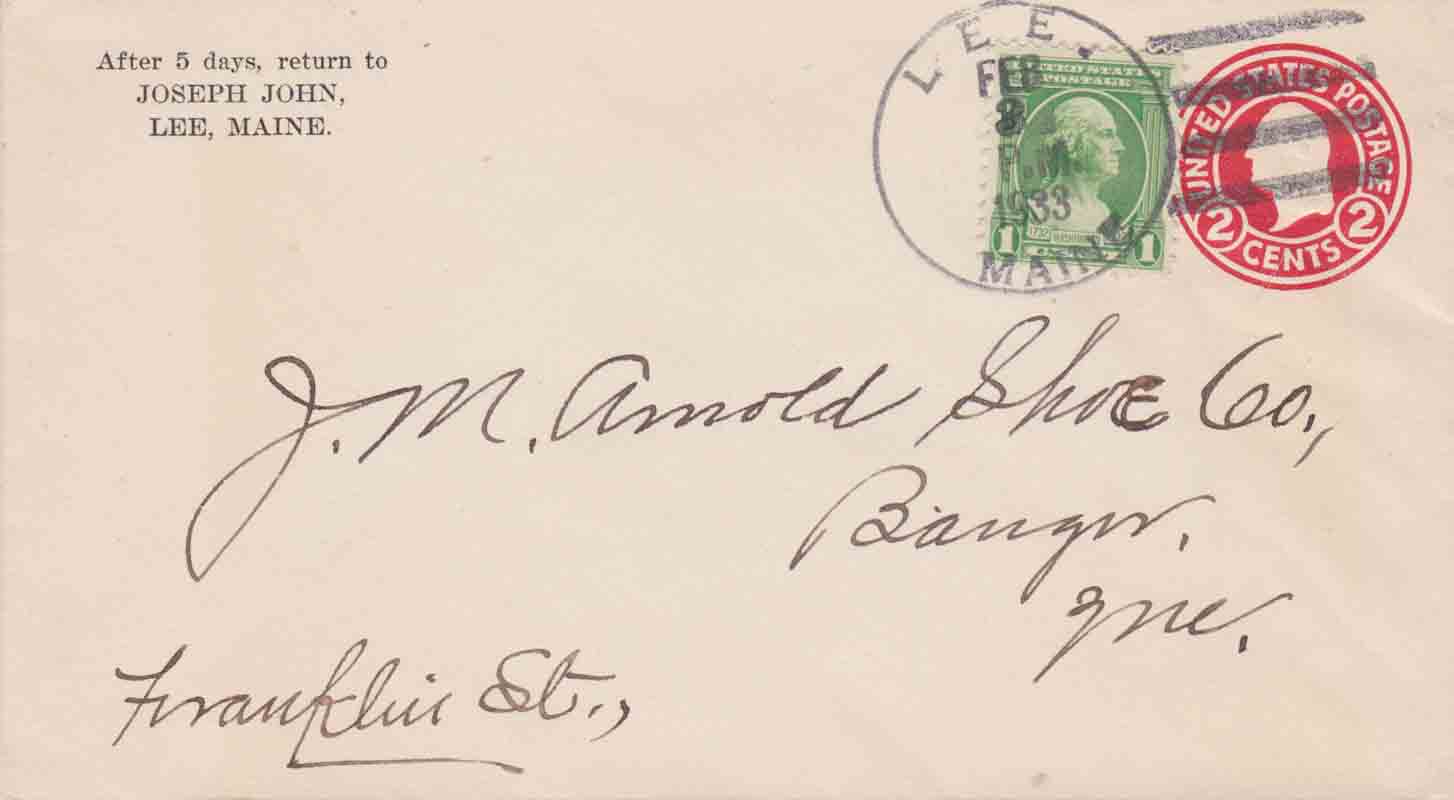 After 5 days, return to
JOSEPH JOHN,
LEE, MAINE.
LEE.
FEB
P.M.
1933
MAINE
UNITED STATES
POSTAGE
1732
WASHINGTON
1 1
UNITED STATES POSTAGE
2 CENTS 2
J. M. Arnold Shoe Co.,
Bangor,
Me.
Franklin St.,